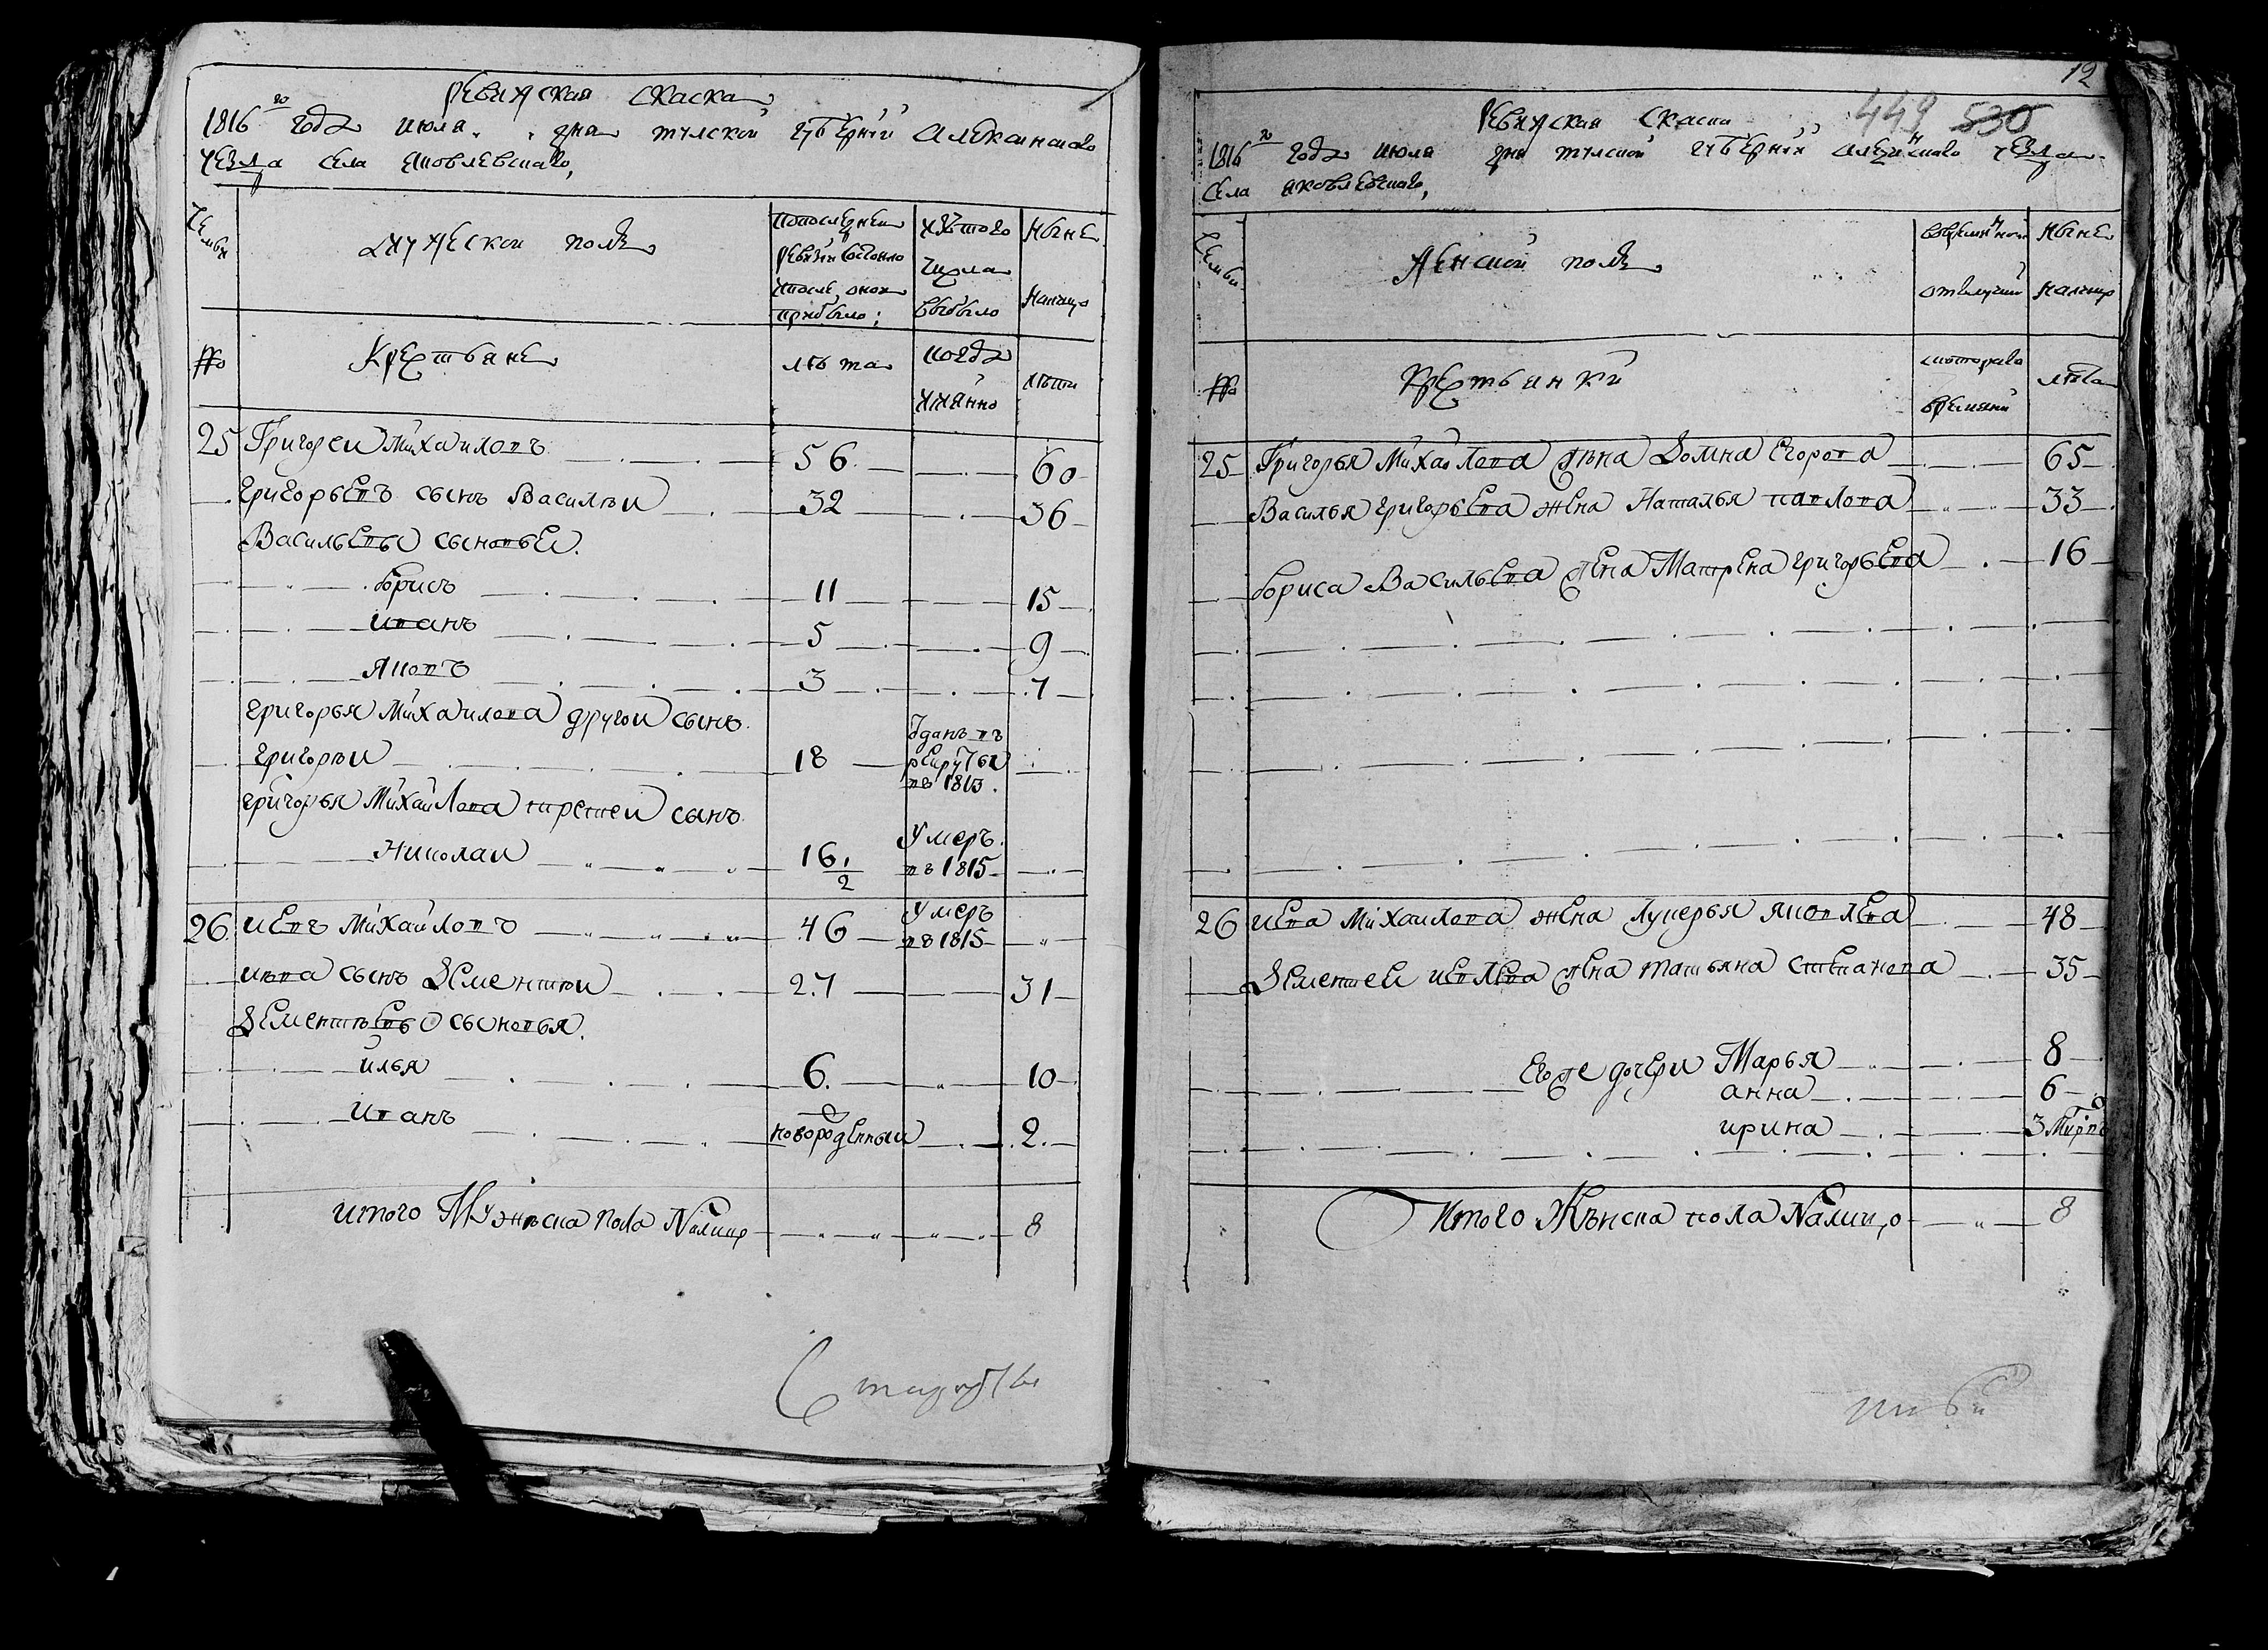 ревижская скаска
1816го года июля дня тулской губернии алексинскаго
уезда села яковлевскаго,
Семьи
мужеской полъ
попоследнеи ревизии состояло ипосле оной прибыло;
изтого числа выбыло
ныне налицо
№
Крестьяне
лета
когда имянно
лета
25 Григореи Михаиловъ 56 60
григорьевъ сынъ Василеи 32 36
Васильевы сыновьеи.
борисъ 11 15
иванъ 5 9
яковъ 3 7
григорья Михаилова другои сынъ
григореи 18 Зданъ въ рекруты въ 1813.
григорья Михаилова третеи сынъ
Николаи 16 1/2 Умеръ въ 1815
26 иевъ Михаиловъ 46 Умеръ въ 1815
иева сынъ Дементеи 27 31
Дементьевы сыновья.
илья 6. 10
иванъ новорожденныи 2.
итого Мужеска пола Налицо 8
12
449 530
ревижская скаска
1816го года июля дня тулской губернии алексинскаго уезда
села яковлевскаго,
Семьи
женской полъ
вовременной отлучки
ныне налицо
№
Крестьянки
скотораго времяни
лета
25 Григорья Михаилова жена Домна Егорова 65
Василья григорьева жена Наталья павлова 33
бориса Васильева жена Матрена григорьева 16
26 иева Михаилова жена Лукерья яковлева 48
Дементеи иевлева жена татьяна степанова 35
Егоже дочери Марья 8
анна 6
ирина 3
Итого Женска пола Налицо 8